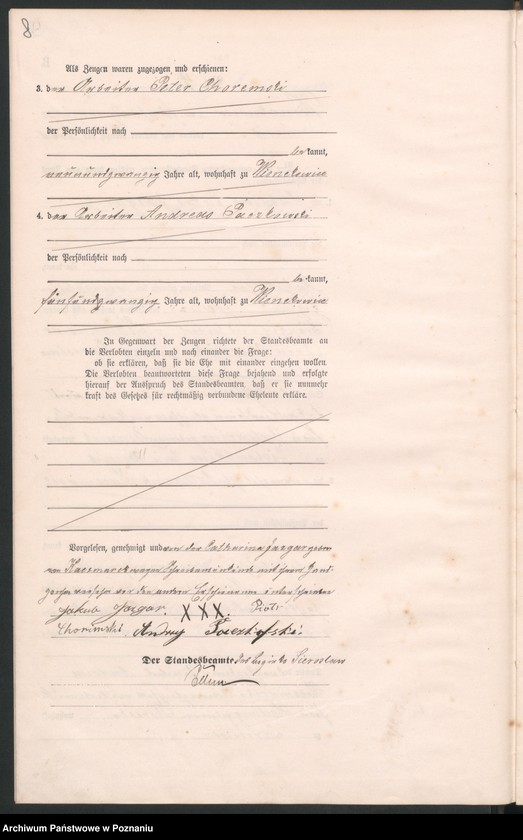 8
Als Zeugen waren zugezogen und erschienen:
3. der Arbeiter Peter Choremski
der Persönlichkeit nach
be kannt,
neunundzwanzig Jahre alt, wohnhaft zu
4. der Arbeiter Andreas Paczkowski
der Persönlichkeit nach
be kannt,
fünfundzwanzig Jahre alt, wohnhaft zu
In Gegenwart der Zeugen richtete der Standesbeamte an
die Verlobten einzeln und nach einander die Frage:
ob sie erklären, daß sie die Ehe mit einander eingehen wollen.
Die Verlobten beantworteten diese Frage bejahend und erfolgte
hierauf der Ausspruch des Standesbeamten, daß er sie nunmehr
kraft des Gesetzes für rechtmäßig verbundene Eheleute erkläre.
Vorgelesen, genehmigt und von der Catharina Jazgar gebor
nen Kaczmarek wegen Schreibensunkunde mit ihrem Hand-
zeichen versehen von den andern Erschienenen unterschrieben
Jakub Jazgar. XXX. Piotr
Choremski Andrzy
Der Standesbeamte.
Archiwum Państwowe w Poznaniu